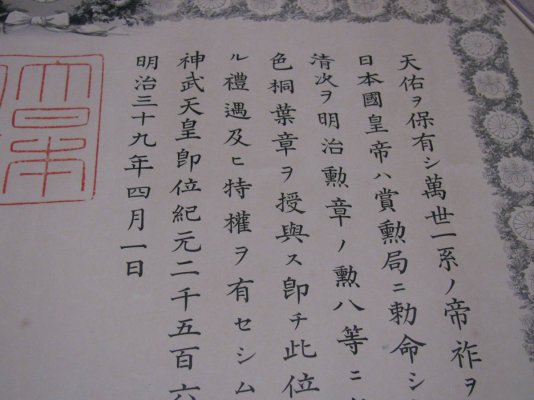 天佑ヲ保有シ萬世一系ノ帝祚ヲ
日本國皇帝ハ賞勲局ニ勅命シ
清次ヲ明治勲章ノ勲八等ニ
色桐葉章ヲ授與ス即チ此位
ル禮遇及ヒ特權ヲ有セシム
神武天皇即位紀元二千五百六
明治三十九年四月一日
大日本